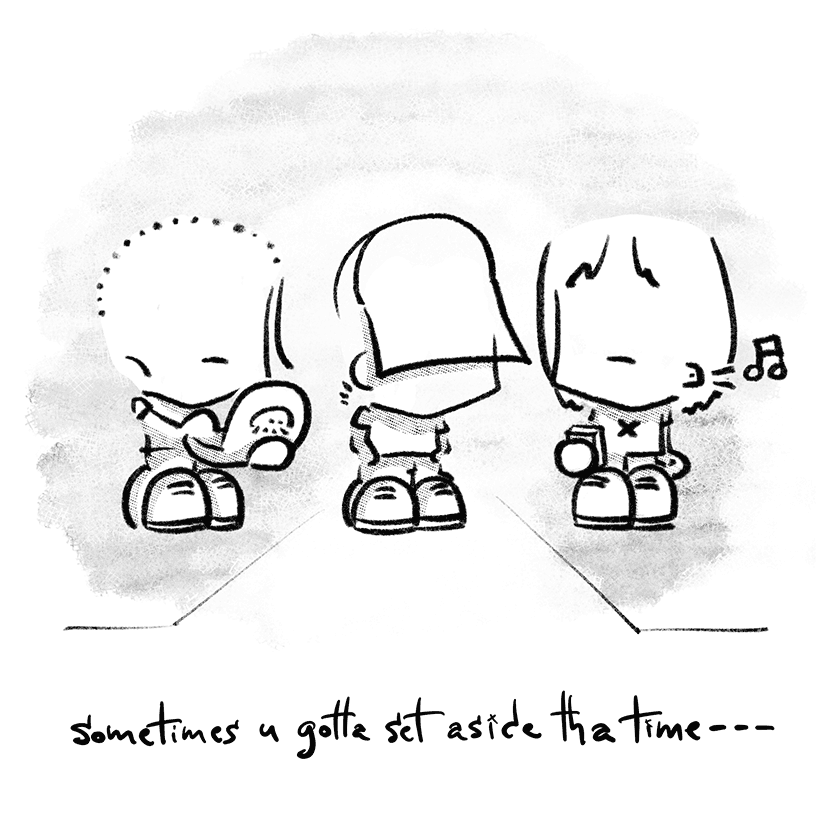 sometimes u gotta set aside tha time---